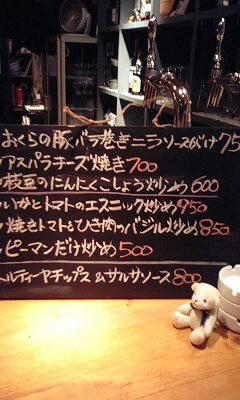 おくらの豚バラ巻きニラソースがけ75
アスパラチーズ焼き700
枝豆のにんにくこしょう炒め600
いかとトマトのエスニック炒め950
焼きトマトとひき肉のバジル炒め850
ピーマンだけ炒め500
トルティーヤチップス&サルサソース800